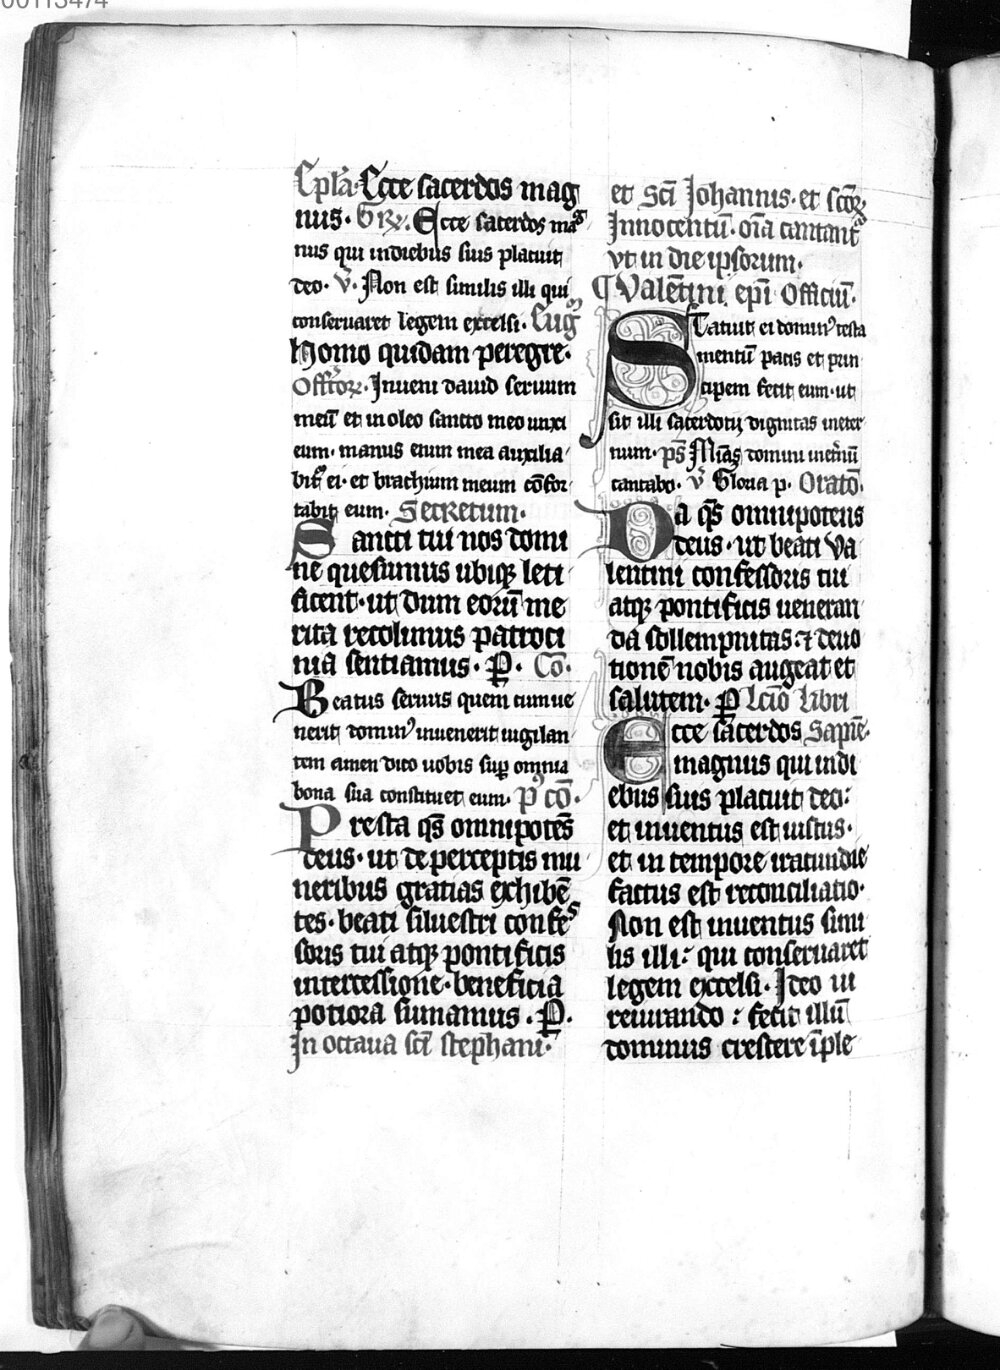 00113474
Epla. Ecce sacerdos mag
nus. Gr. Ecce sacerdos ma
nus qui indiebus suis placuit
deo. v. Non est similis illi qui
conseruaret legem excelsi. Eug
Homo quidam peregre.
Offitor. Inueni dauid seruum
meū et in oleo sancto meo unxi
eum. manus enim mea auxilia
bit ei. et brachium meum cōfor
tabit eum. Secretum.
Sancti tui nos domi
ne quesumus ubiqꝫ leti
ficent. ut dum eorū me
rita recolimus patroci
nia sentiamus. P. Cō.
Beatus seruus quem cum ue
nerit dominꝰ inuenerit uigilan
tem amen dico uobis sup omnia
bona sua constituet eum. p cō.
Presta qs̄ omnipotēs
deus. ut de perceptis mu
neribus gratias exhibē
tes. beati siluestri confes
soris tui atqꝫ pontificis
intercessione. beneficia
potiora sumamus. P.
In octaua sc̄i stephani.
et Sc̄i Johannis. et sc̄oꝝ
Innocentū. oīa cantant
vt in die ipsorum.
¶ Valētini ep̄i Officiū.
Statuit ei dominꝰ testa
mentū pacis et prin
cipem fecit eum. ut
sit illi sacerdotij dignitas ineter
num. ps̄ Mīas domini ineternū
cantabo. v Gloria p. Oratō.
Da qs̄ omnipotens
deus. ut beati Va
lentini confessoris tui
atqꝫ pontificis ueneran
da sollempnitas. ⁊ deuo
tionē nobis augeat et
salutem. P Lcīo Libri
Ecce sacerdos Sapiē.
magnus qui indi
ebus suis placuit deo:
et inuentus est iustus.
et in tempore iracundie
factus est reconciliatio.
Non est inuentus simi
lis illi: qui conseruaret
legem excelsi. Ideo iu
reiurando: fecit illū
dominus crescere īple